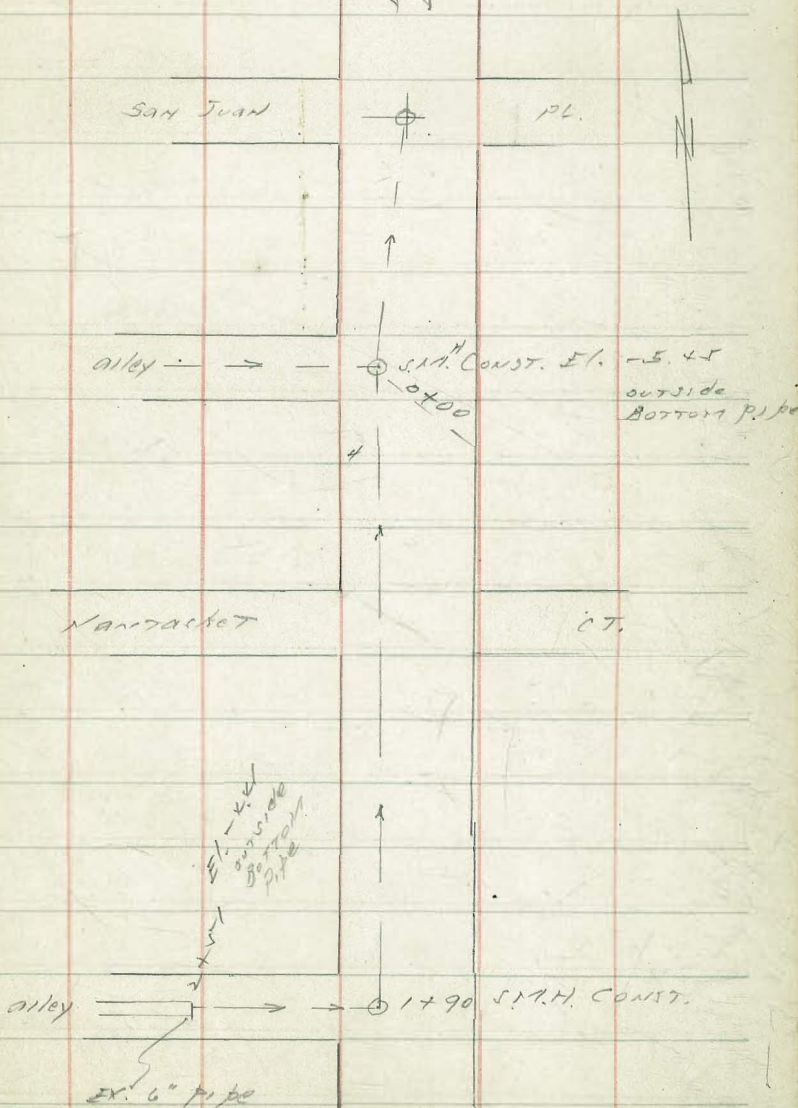 San Juan PL.
N
alley S.M.H CONST. El. -5.45
outside
Bottom pipe
0+00
4
Nantasket CT.
2+51 El. -4.41
outside
Bottom
Pipe
alley 1+90 S.M.H. CONST.
EX. 6" pipe